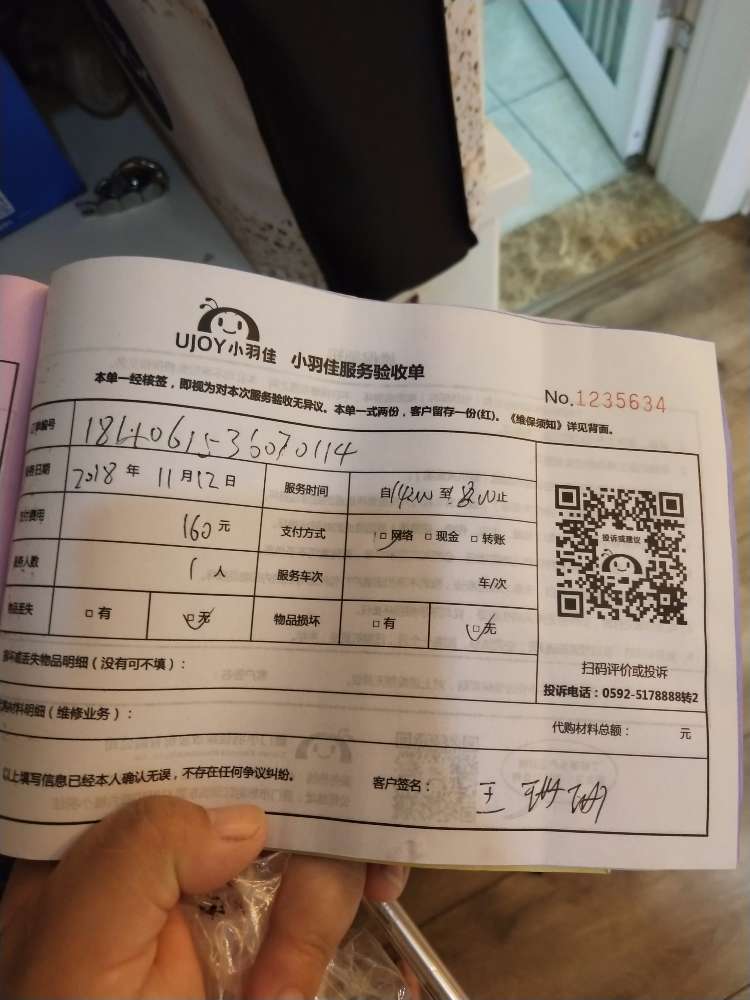 UJOY小羽佳 小羽佳服务验收单
本单一经核签，即视为对本次服务验收无异议。本单一式两份，客户留存一份(红)。《维保须知》详见背面。
No.1235634
订单编号
日期 2018 年 11 月 12 日 服务时间 自 至 止
费用 160 元 支付方式 □网络 □现金 □转账
人数 1 人 服务车次 车/次
物品丢失 □有 □无 物品损坏 □有 □无
投诉或建议
扫码评价或投诉
投诉电话：0592-5178888转2
丢失物品明细（没有可不填）：
材料明细（维修业务）：
代购材料总额： 元
以上填写信息已经本人确认无误，不存在任何争议纠纷。
客户签名： 王